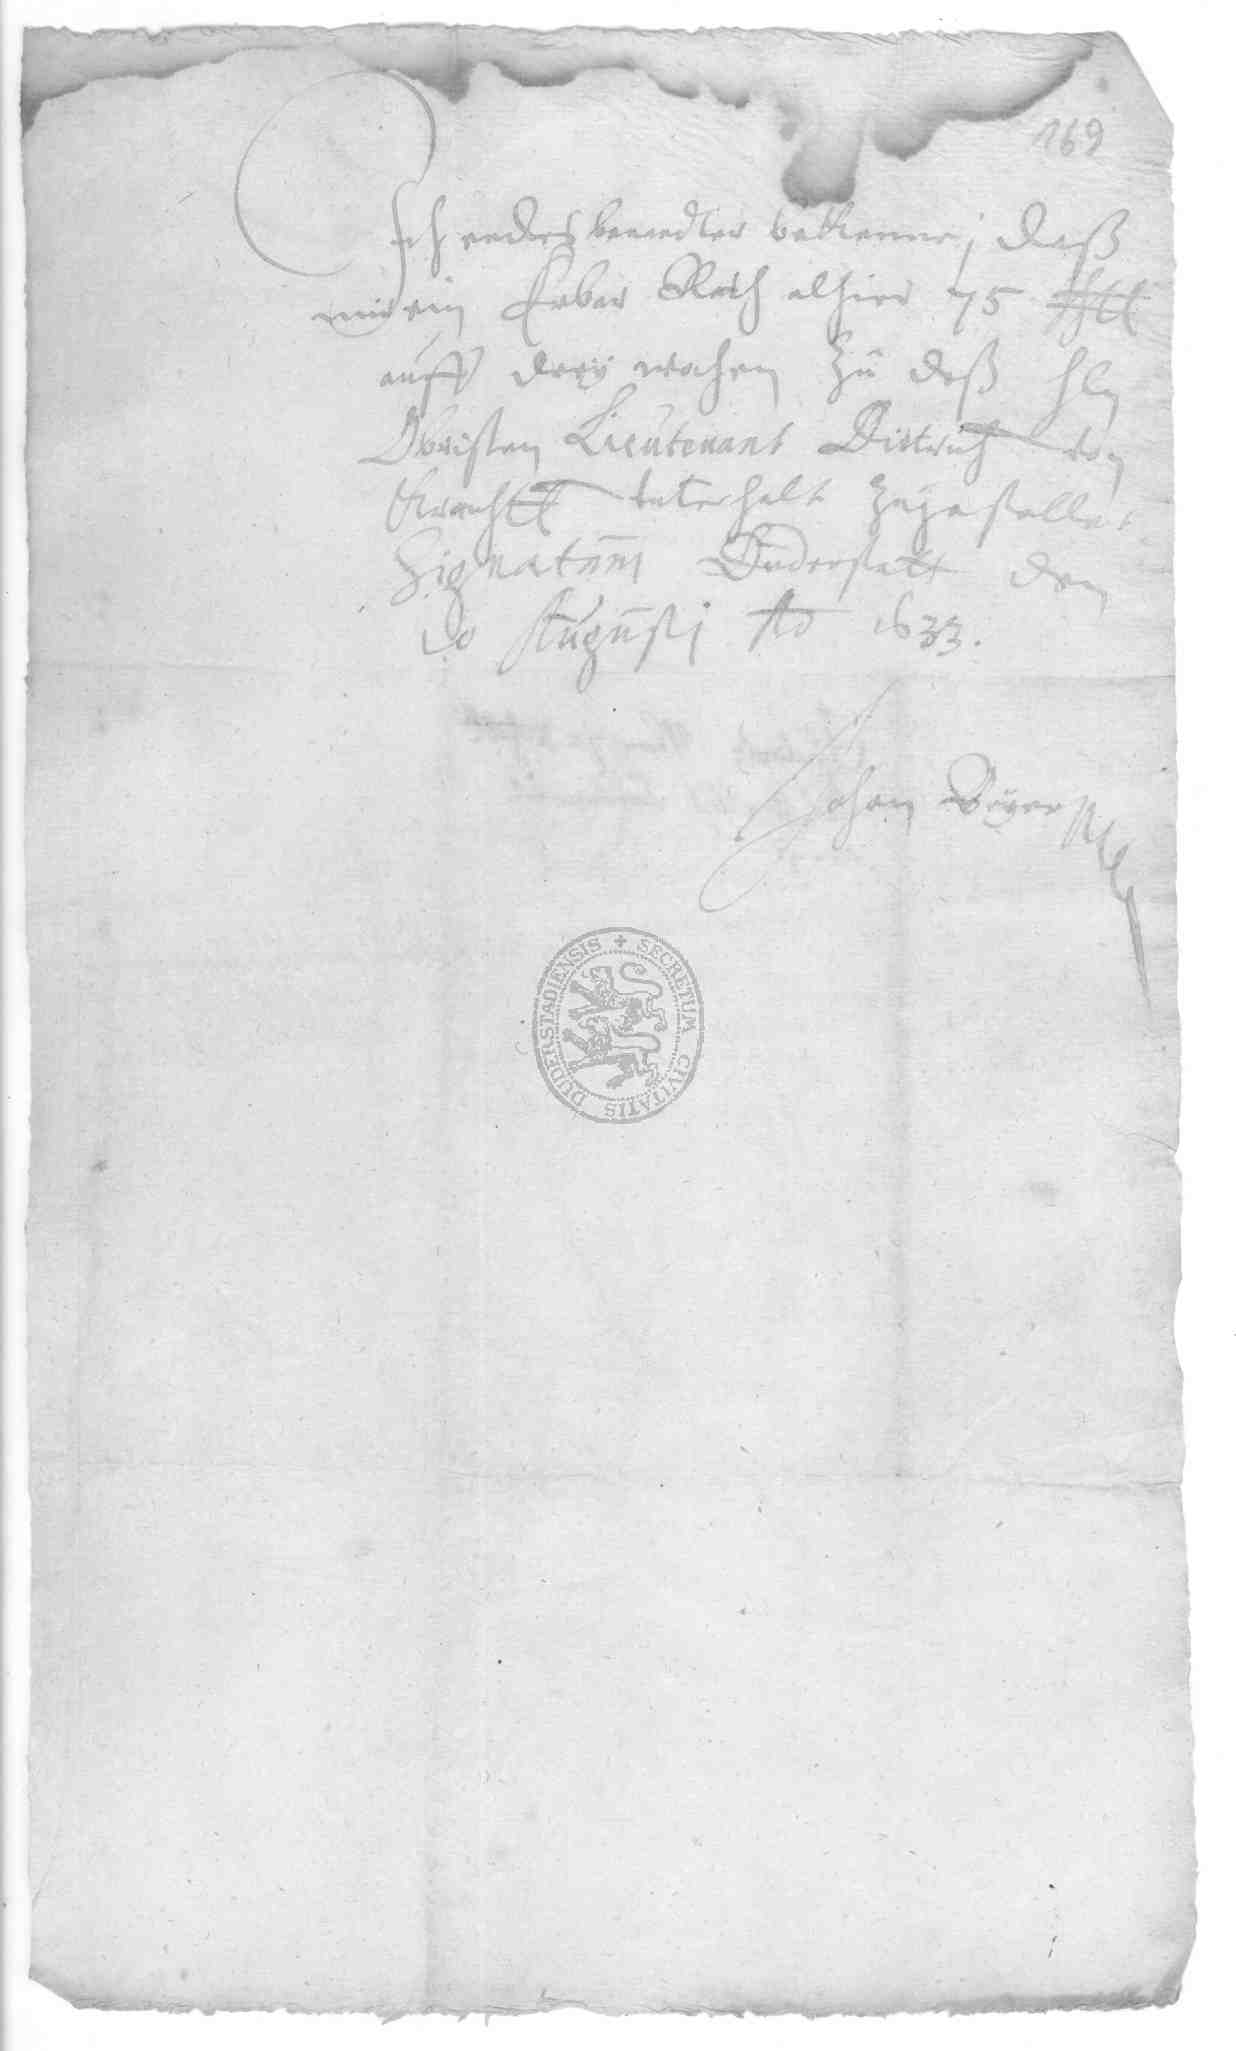 169
Ich endes benendter bekenne, daß
mir ein Erbar Rath alhier 75
auff drey wochen Zu deß
Obristen Lieutenant Dittrich von
Unterhalt Zugestellet
Signatum Duderstatt den
Augusti Ao 1633.
Johan
SECRETUM CIVITATIS DUDERSTADIENSIS